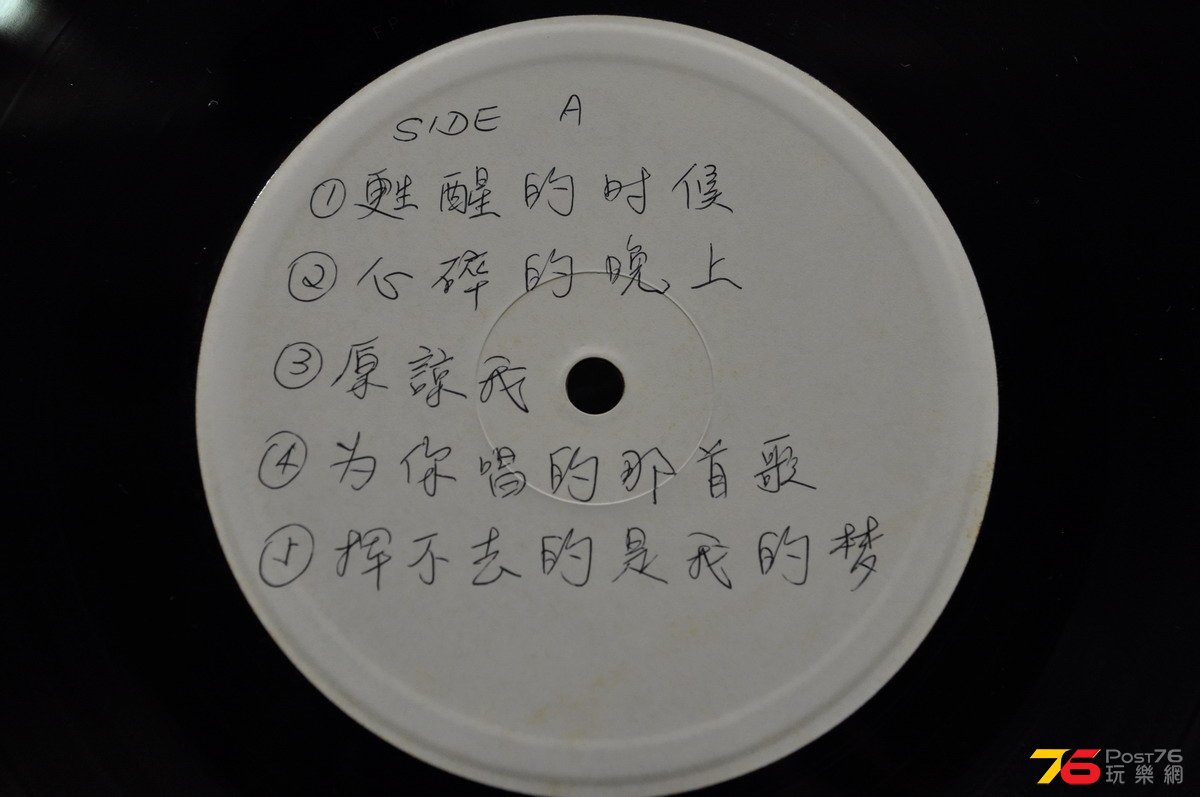 SIDE A
①甦醒的时候
②心碎的晚上
③原諒我
④为你唱的那首歌
⑤挥不去的是我的梦
76 POST76
玩樂網